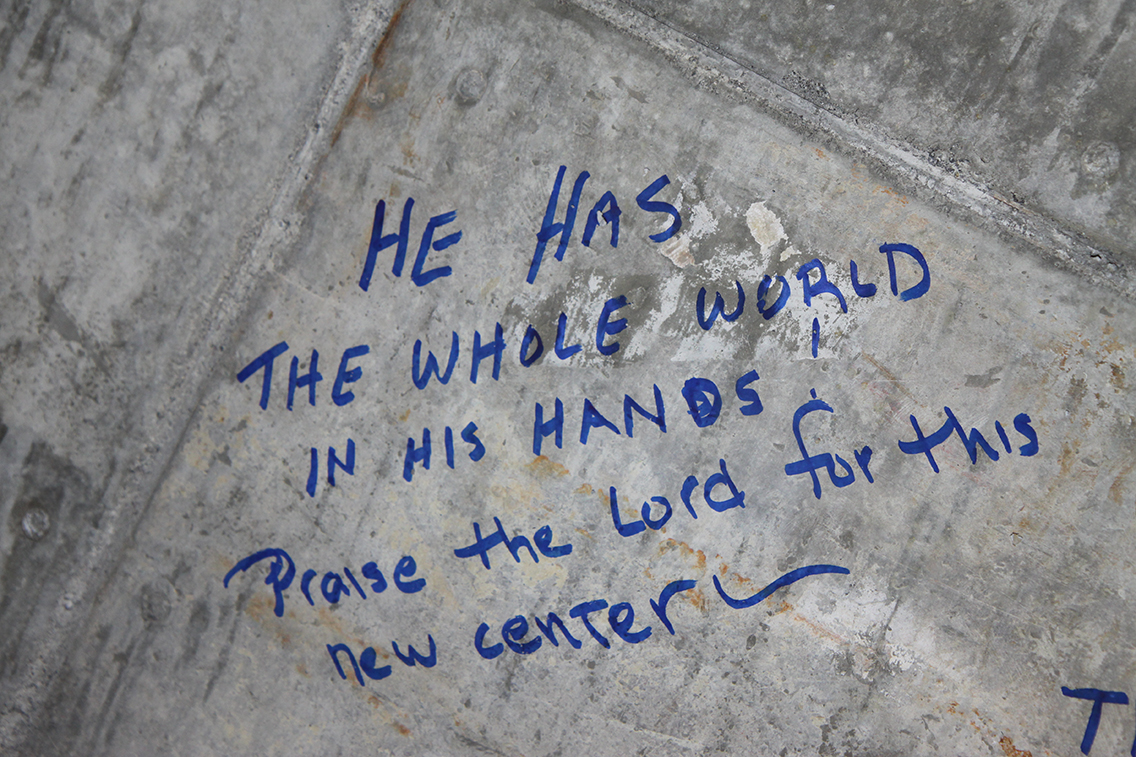 HE HAS
THE WHOLE WORLD
IN HIS HANDS!
Praise the Lord for this
new center